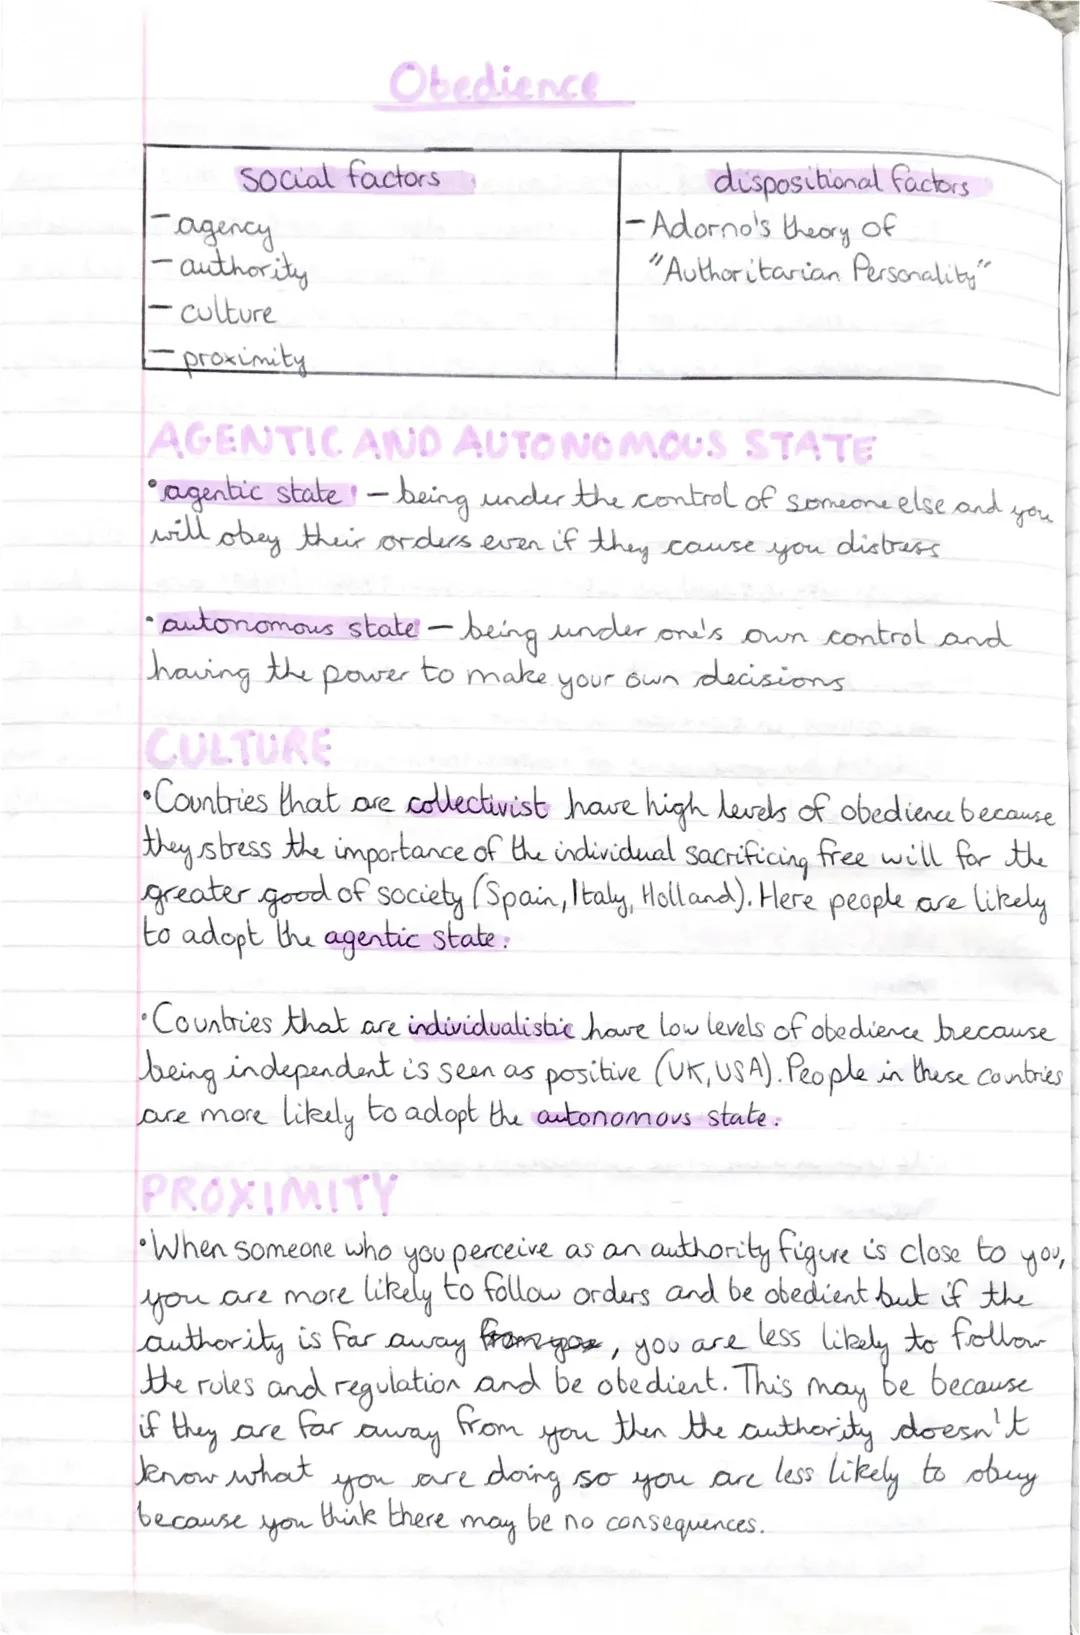 Obedience
social factors
- agency
- authority
- culture
- proximity
dispositional factors
- Adorno's theory of
"Authoritarian Personality"
AGENTIC AND AUTONOMOUS STATE
• agentic state - being under the control of someone else and you
will obey their orders even if they cause you distress
• autonomous state - being under one's own control and
having the power to make your own decisions
CULTURE
• Countries that are collectivist have high levels of obedience because
they stress the importance of the individual sacrificing free will for the
greater good of society (Spain, Italy, Holland). Here people are likely
to adopt the agentic state.
• Countries that are individualistic have low levels of obedience because
being independent is seen as positive (UK, USA). People in these countries
are more likely to adopt the autonomous state.
PROXIMITY
• When someone who you perceive as an authority figure is close to you,
you are more likely to follow orders and be obedient but if the
authority is far away from you, you are less likely to follow
the rules and regulation and be obedient. This may be because
if they are far away from you then the authority doesn't
know what you are doing so you are less likely to obey
because you think there may be no consequences.